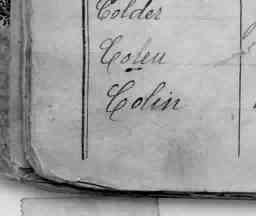 Colder
Coleu
Colin